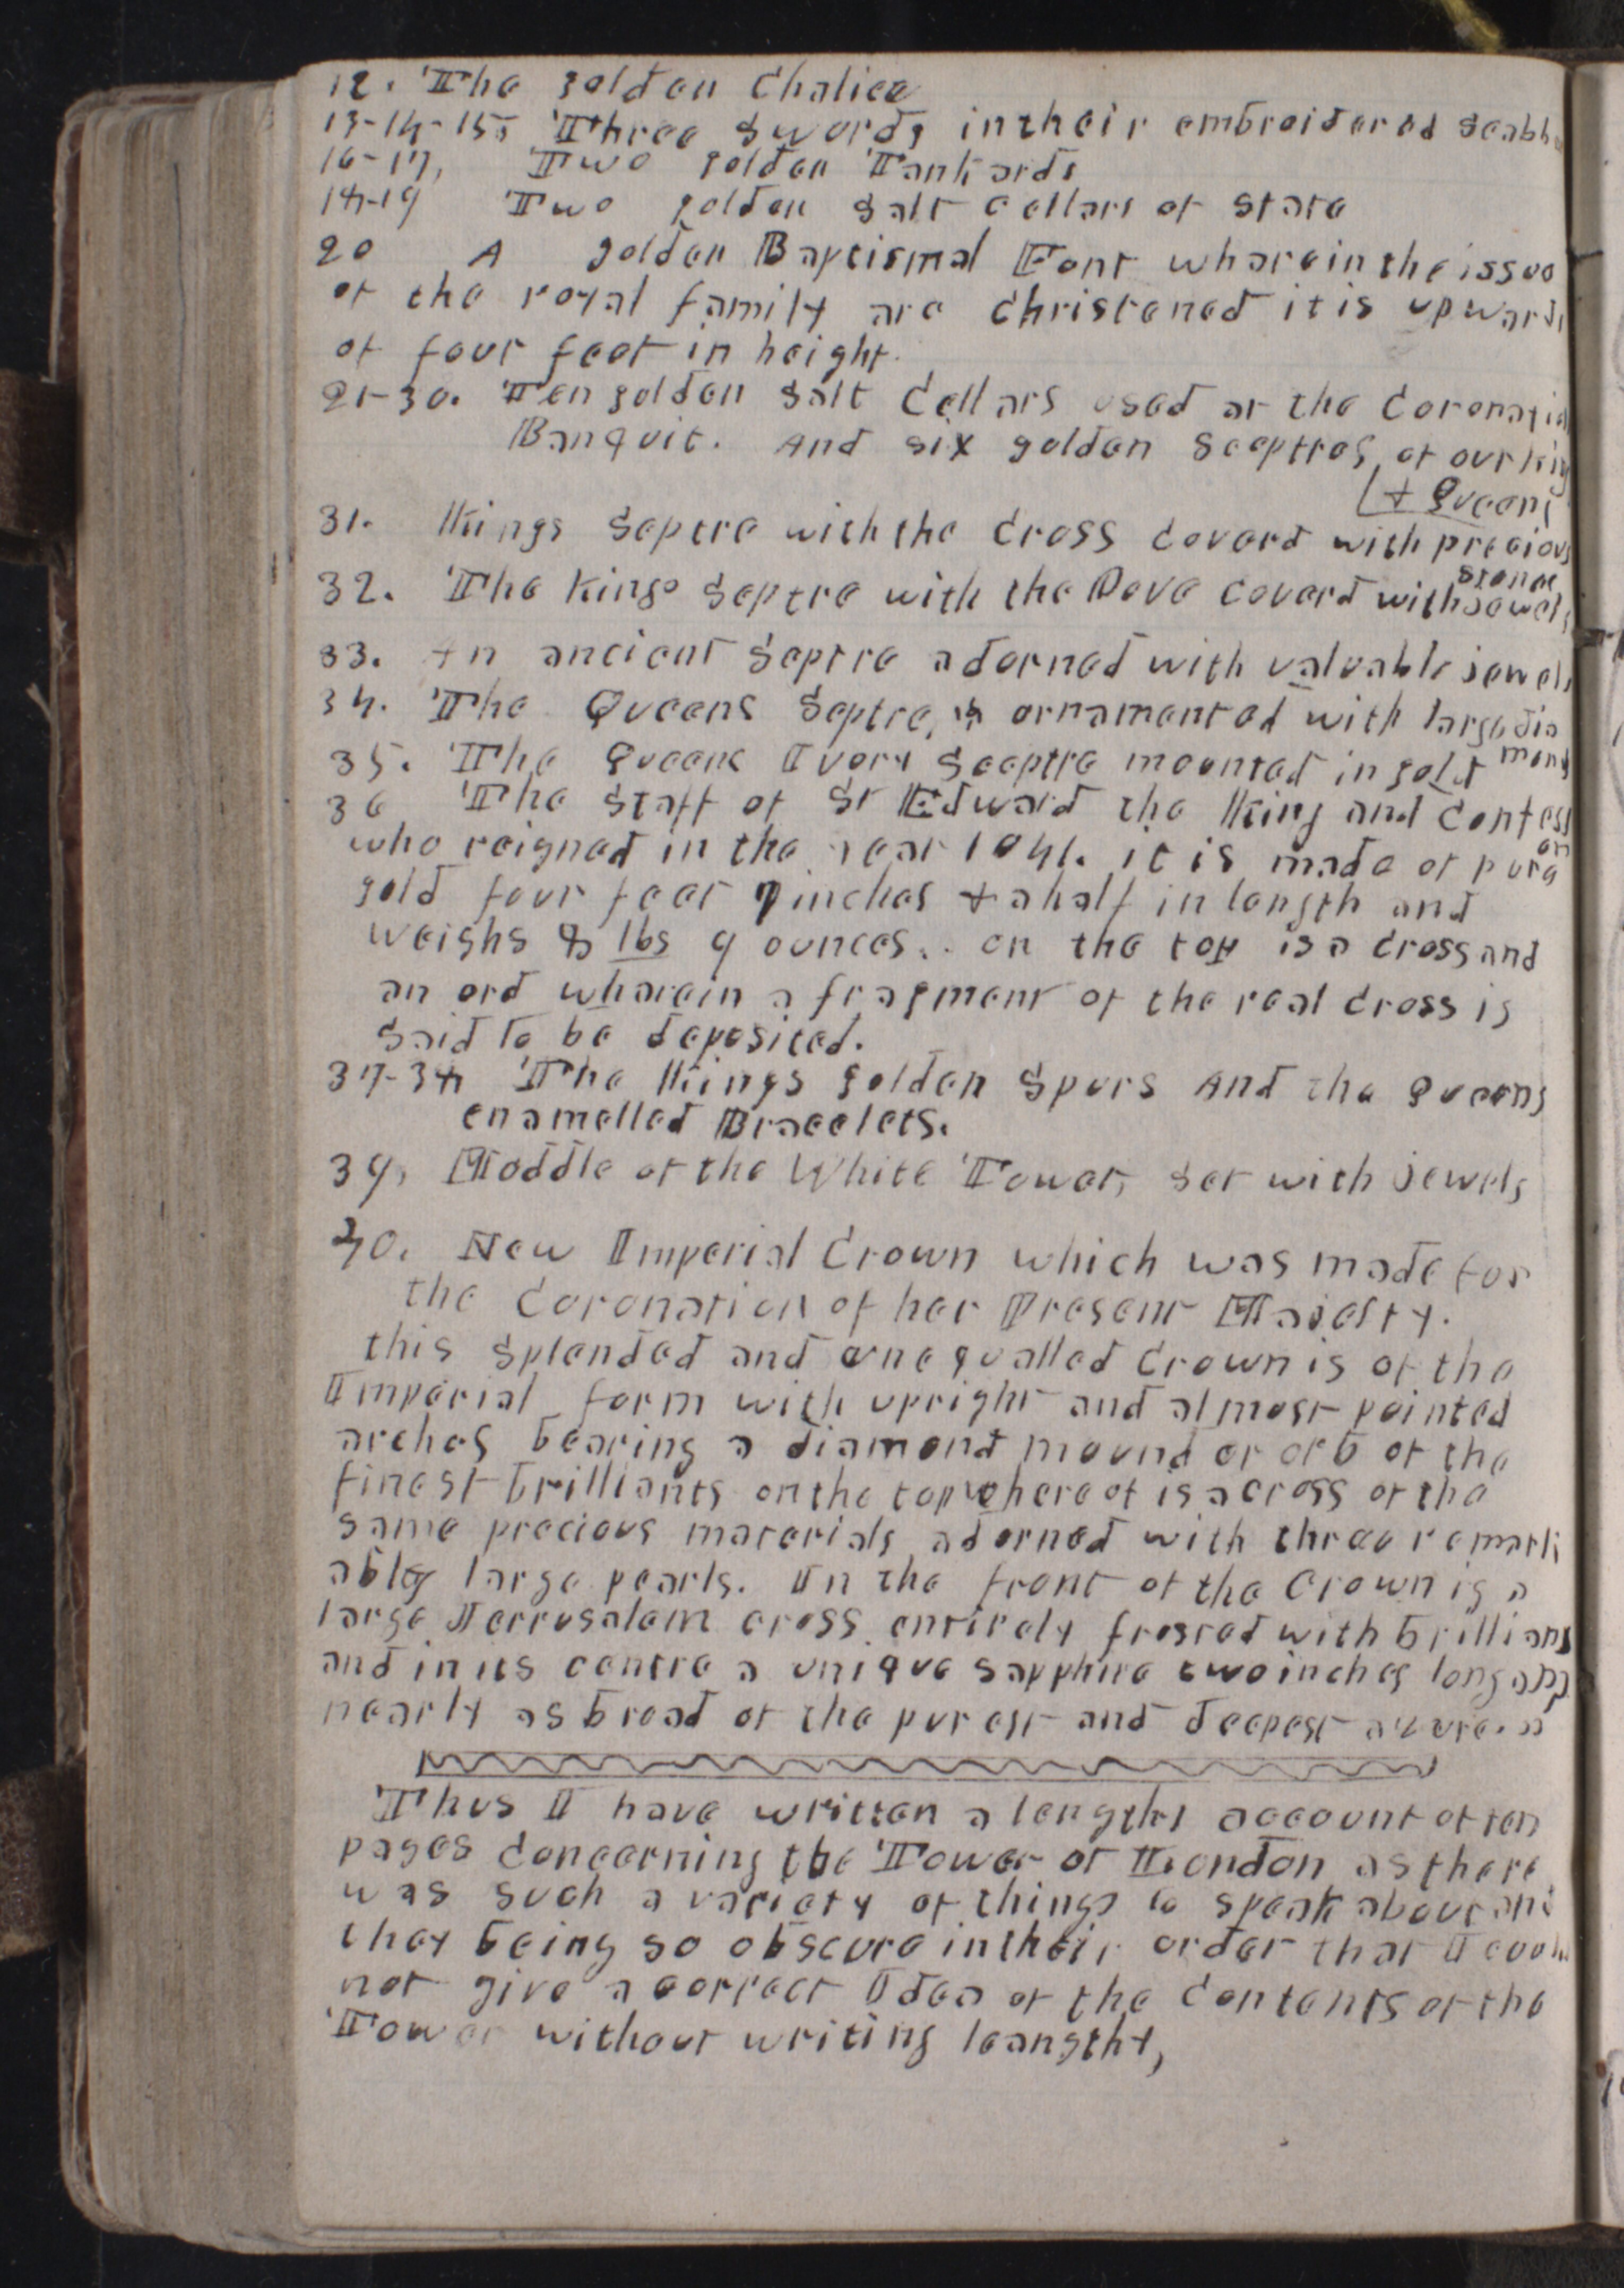 12. The golden Chalice
13-14-15 Three Swords in their embroidered Scabb
16-17, Two golden Tankards
18-19 Two golden Salt Cellars of State
20 A golden Baptismal Font wherein the issue
of the royal family are Christened it is upwards
of four feet in height.
21-30. Ten golden Salt Cellars used at the Coronatio
Banquit. And six golden Sceptres of our king
+ Queens
31. Kings Septre with the Cross Coverd with precious
stones
32. The Kings Septre with the Dove Coverd with Jewels
33. An ancient Septre adorned with valuable jewels
34. The Queens Septre, is ornamented with large dia
monds
35. The Queens Ivory Sceptre mounted in gold
36 The Staff of St Edward the King and Confess
or
who reigned in the year 1041. it is made of pure
gold four feet 7 inches + a half in length and
weighs 8 lbs 9 ounces.. on the top is a Cross and
an ord wherein a fragment of the real Cross is
Said to be deposited.
37-38 The Kings golden Spurs And the Queens
enamelled Bracelets.
39, Moddle of the White Tower, Set with jewels
40. New Imperial Crown which was made for
the Coronation of her Present Majesty.
this Splended and unequalled Crown is of the
Imperial form with upright and almost pointed
arches bearing a diamond mound or orb of the
finest brilliants on the top whereof is a cross of the
same precious materials adorned with three remark
ably large pearls. In the front of the Crown is a
large Jerrusalem cross entirely frosted with brillians
and in its centre a unique sapphire two inches long and
nearly as broad of the purest and deepest azure.
Thus I have written a lengthy account of ten
pages Concerning the Tower of London as there
was such a variety of things to speak about and
they being so obscure in their order that I could
not give a correct Idea of the Contents of the
Tower without writing leangthy,